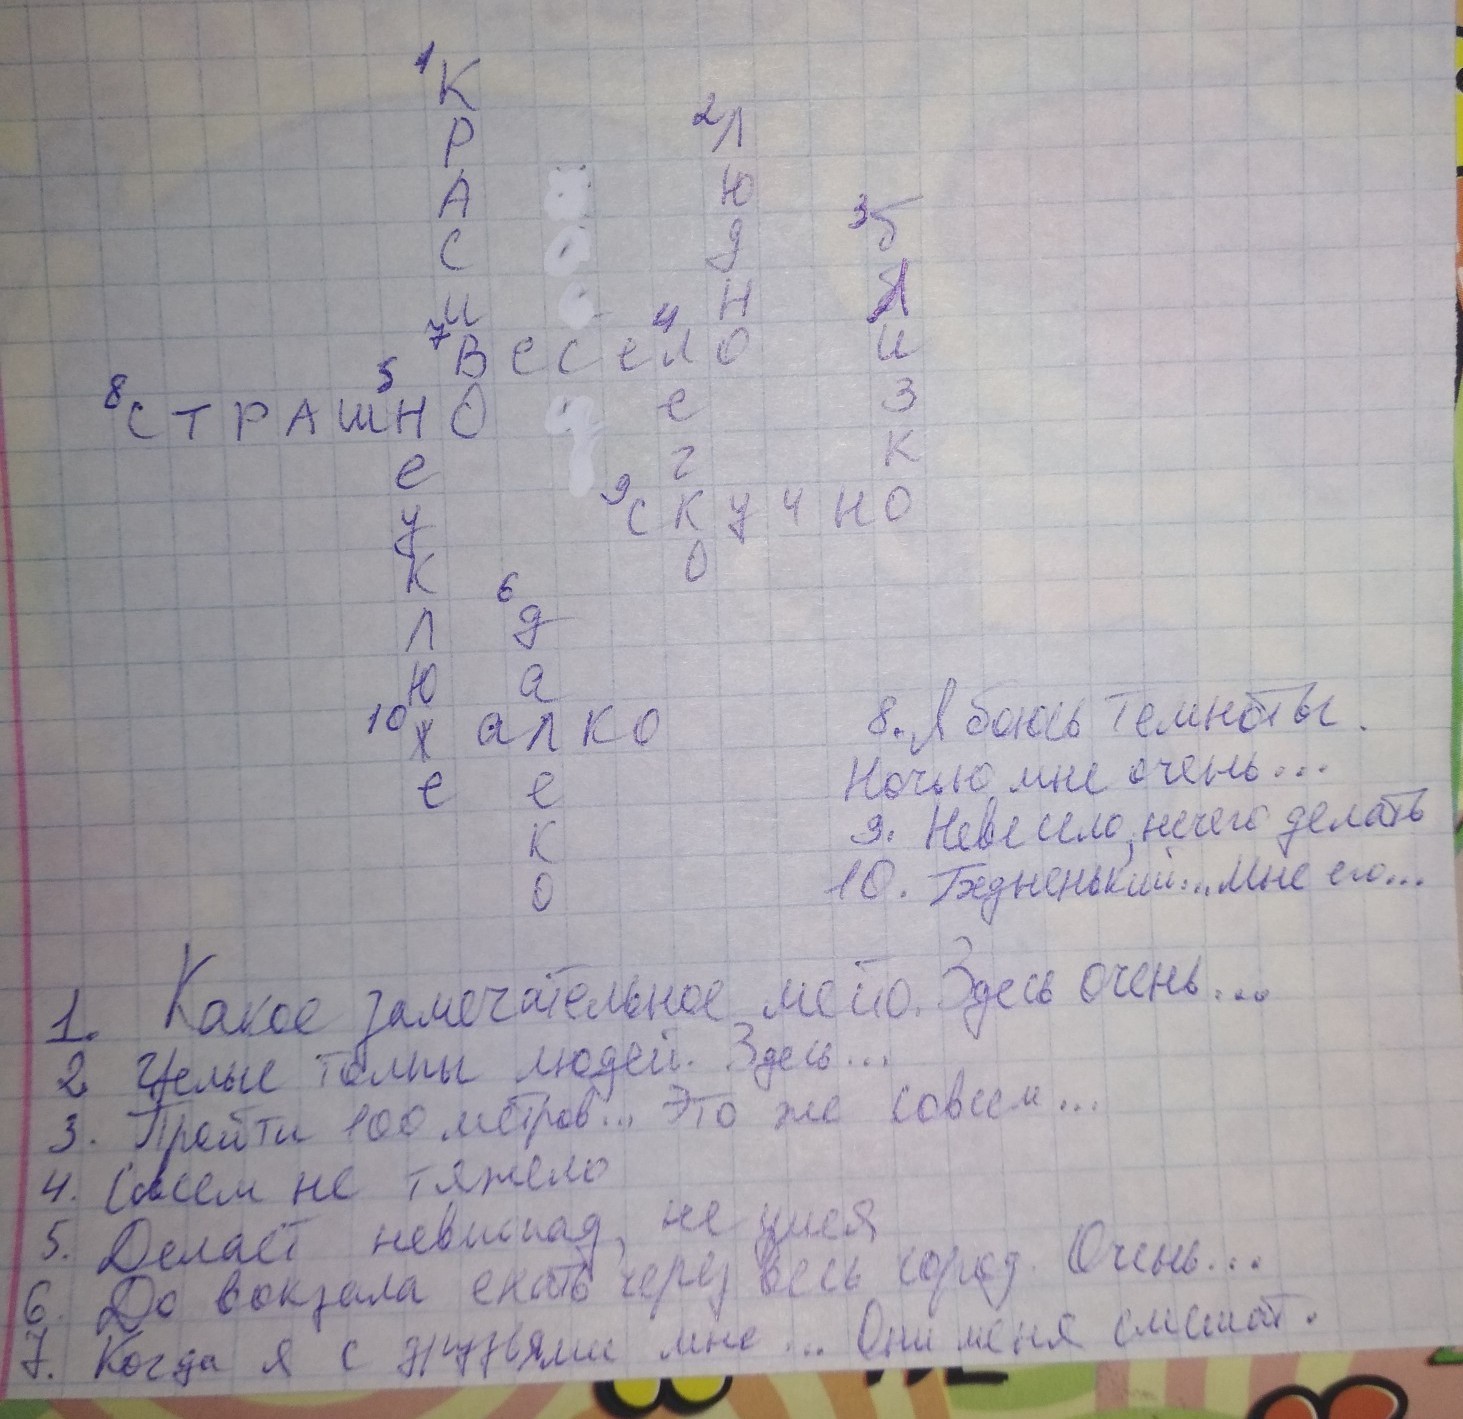 1К
Р 2Л
А Ю
С д 3б
и Н л
7В е с е 4л О и
8С Т Р А Ш 5Н О е З
е г К
у 9с К у ч н О
К О
Л 6д
Ю а
10ж а л к о
е е
К
О
8. Я боюсь темноты.
Ночью мне очень...
9. Невесело, нечего делать
10. Бедненький... Мне его...
1. Какое замечательное место. Здесь очень...
2 Целые толпы людей. Здесь...
3. Пройти 100 метров... Это же совсем...
4. Совсем не тяжело
5. Делает невпопад, не умея
6. До вокзала ехать через весь город. Очень...
7. Когда я с друзьями мне... Они меня смешат.